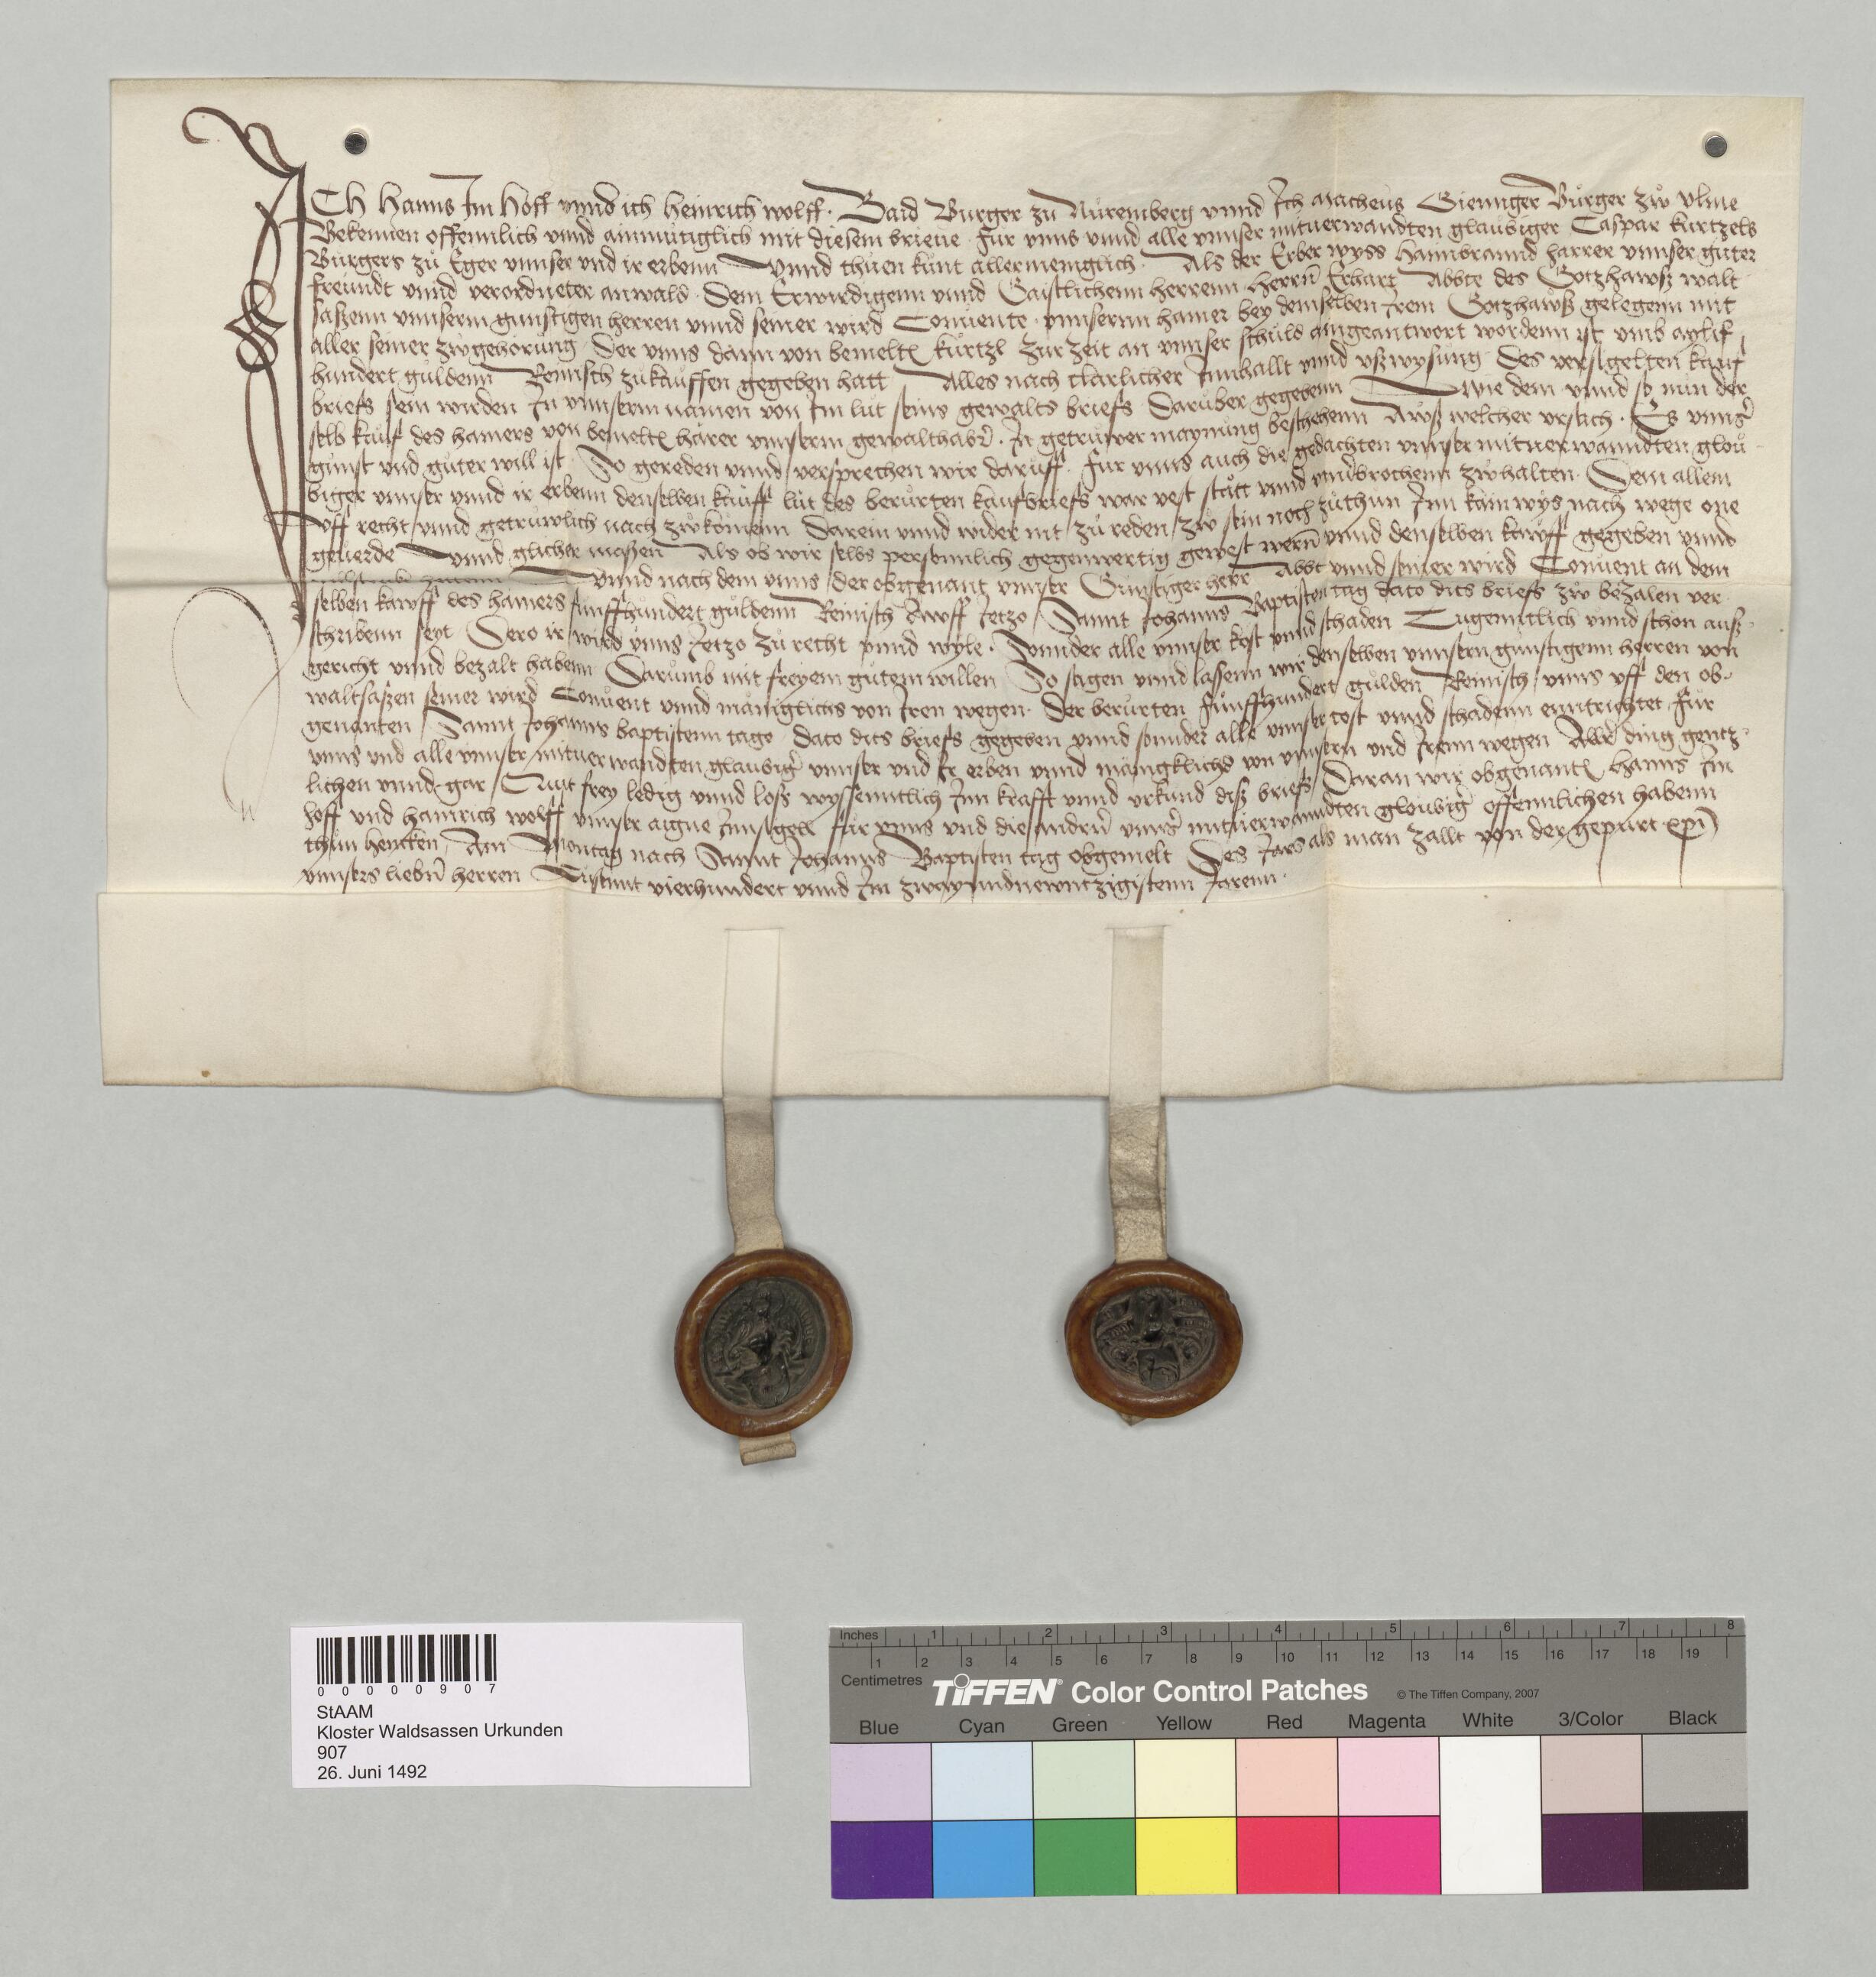 ICH Hanns Im Hoff vnnd ich Heinrich wolff. Baid Burger zu Nuremberg vnnd Ich Matheus Gienger Burger zů vlme
Bekennen offennlich vnnd ainmutiglich mit diesem brieue fur vnns vnnd alle vnnser mituerwandten glaubiger Caspar kurtzels
Burgers zu Eger vnnser vnd ir erbenn Vnnd thuen kunt allermeniglich Als der Erber wyss Hannbrannd harrer vnnser guter
freundt vnnd verordneter anwals Dem Erwirdigenn vnnd Gaistlichenn herrenn herrn Erhart Abbte des Gotzhawß walt
saßenn vnnserm gunstigen herren vnnd seiner wird Conuente vnnsernn hamer bey demselben Irem Gotzhawß gelegenn mit
aller seiner zwgehorung Der vnns dann von bemelt kurtzl zur zeit an vnnser schuld aingeantwort wordenn ist vmb aylif
hundert guldenn Reinisch zukauffen gegeben hatt Alles nach clarlicher Innhallt vnnd vßwysung des versigelten kauf
briefs sein wirden In vnnserm namen von Im lut seins gewalts briefs daruber gegebenn Wie dem vnnd so nun der
selb kauf des hamers von bemelt harer vnnserm gewalthaber In getruwer maynung beschehenn Awß welcher vrsach Es vnns
gunst vnd guter will ist So gereden vnnd versprechen wir daruff fur vnns auch die gedachten vnnser mituerwanndten glou
biger vnnser vnnd ir erbenn denselben kauff lut des berurten kaufbriefs war vest statt vnnd vnuerbrochenn zwhalten Dem allem
vff recht vnnd getruwlich nach zwkomenn Darein vnnd wider nit zu reden zw sein noch zuthun Inn kain wys nach wege one
geuerde vnnd glicher maßen Als ob wir selbs personnlich gegenwertig gewest wern vnnd denselben kawff gegeben vnnd
Vnnd nach dem vnns der obgenant vnnser Gunstiger herr Abbt vnnd seiner wird Conuent an dem
selben kawff des hamers funffhundert guldenn Reinisch Awff Jetzo Sannt Johanns Baptisten tag dato dits briefs zw bezalen ver
schribenn seyt Dero ir wird vnns Jetzo zu recht vnnd wyle Sunnder alle vnnser kost vnnd schaden Tugenntlich vnnd schon auß
gericht vnnd bezalt habenn Darumb mit freyem gutem willen So sagen vnnd lasenn wir denselben vnnsern gunstigenn herren von
waltsaßen seiner wird Conuent vnnd maniglichs von Iren wegen Der berurten funffhundert gulden Reinisch vnns vff den ob
genanten Sannt Johanns baptistenn tage dato dits briefs gegeben vnnd sonnder alle vnnser cost vnnd schadenn enntrichtet fur
vnns vnd alle vnnser mituerwandten glaubiger vnnser vnd Ir erben vnnd maingklichs von vnnsern vnd Irenn wegen Aller ding gentz
lichen vnnd gar Quit frey ledig vnnd loss wyssenntlich Inn krafft vnnd vrkund diß briefs Daran wir obgenant Hanns Im
hoff vnd hainrich wolff vnnser aigne Innsigell fur vnns vnd die andern vnnser mituerwanndten gloubiger offennlichen habenn
thun hencken Am Montag nach Sannt Johanns Baptisten tag obgemelt Des Jars als man zallt von der gepurt xpi
vnnsers liebn herren Tusennt vierhundert vnnd Im zwayundnewntzigistenn Jarenn
00000907
StAAM
Kloster Waldsassen Urkunden
907
26. Juni 1492
Inches 1 2 3 4 5 6 7 8
1 2 3 4 5 6 7 8 9 10 11 12 13 14 15 16 17 18 19
Centimetres
TIFFEN® Color Control Patches © The Tiffen Company, 2007
Blue Cyan Green Yellow Red Magenta White 3/Color Black